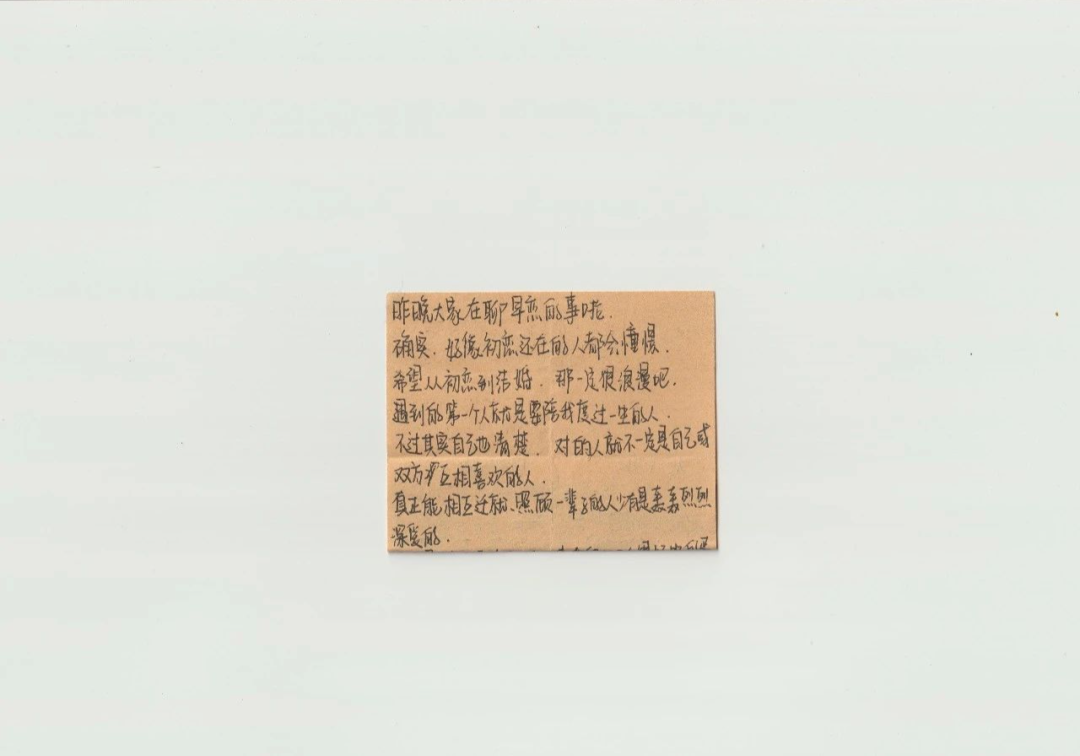 昨晚大家在聊早恋的事啦.
确实.好像初恋还在的人都会憧憬.
希望从初恋到结婚.那一定很浪漫吧.
遇到的第一个人就是要陪我度过一生的人.
不过其实自己也清楚.对的人就不一定是自己或
双方互相喜欢的人.
真正能相互迁就、照顾一辈子的人少有是轰轰烈烈
深爱的.